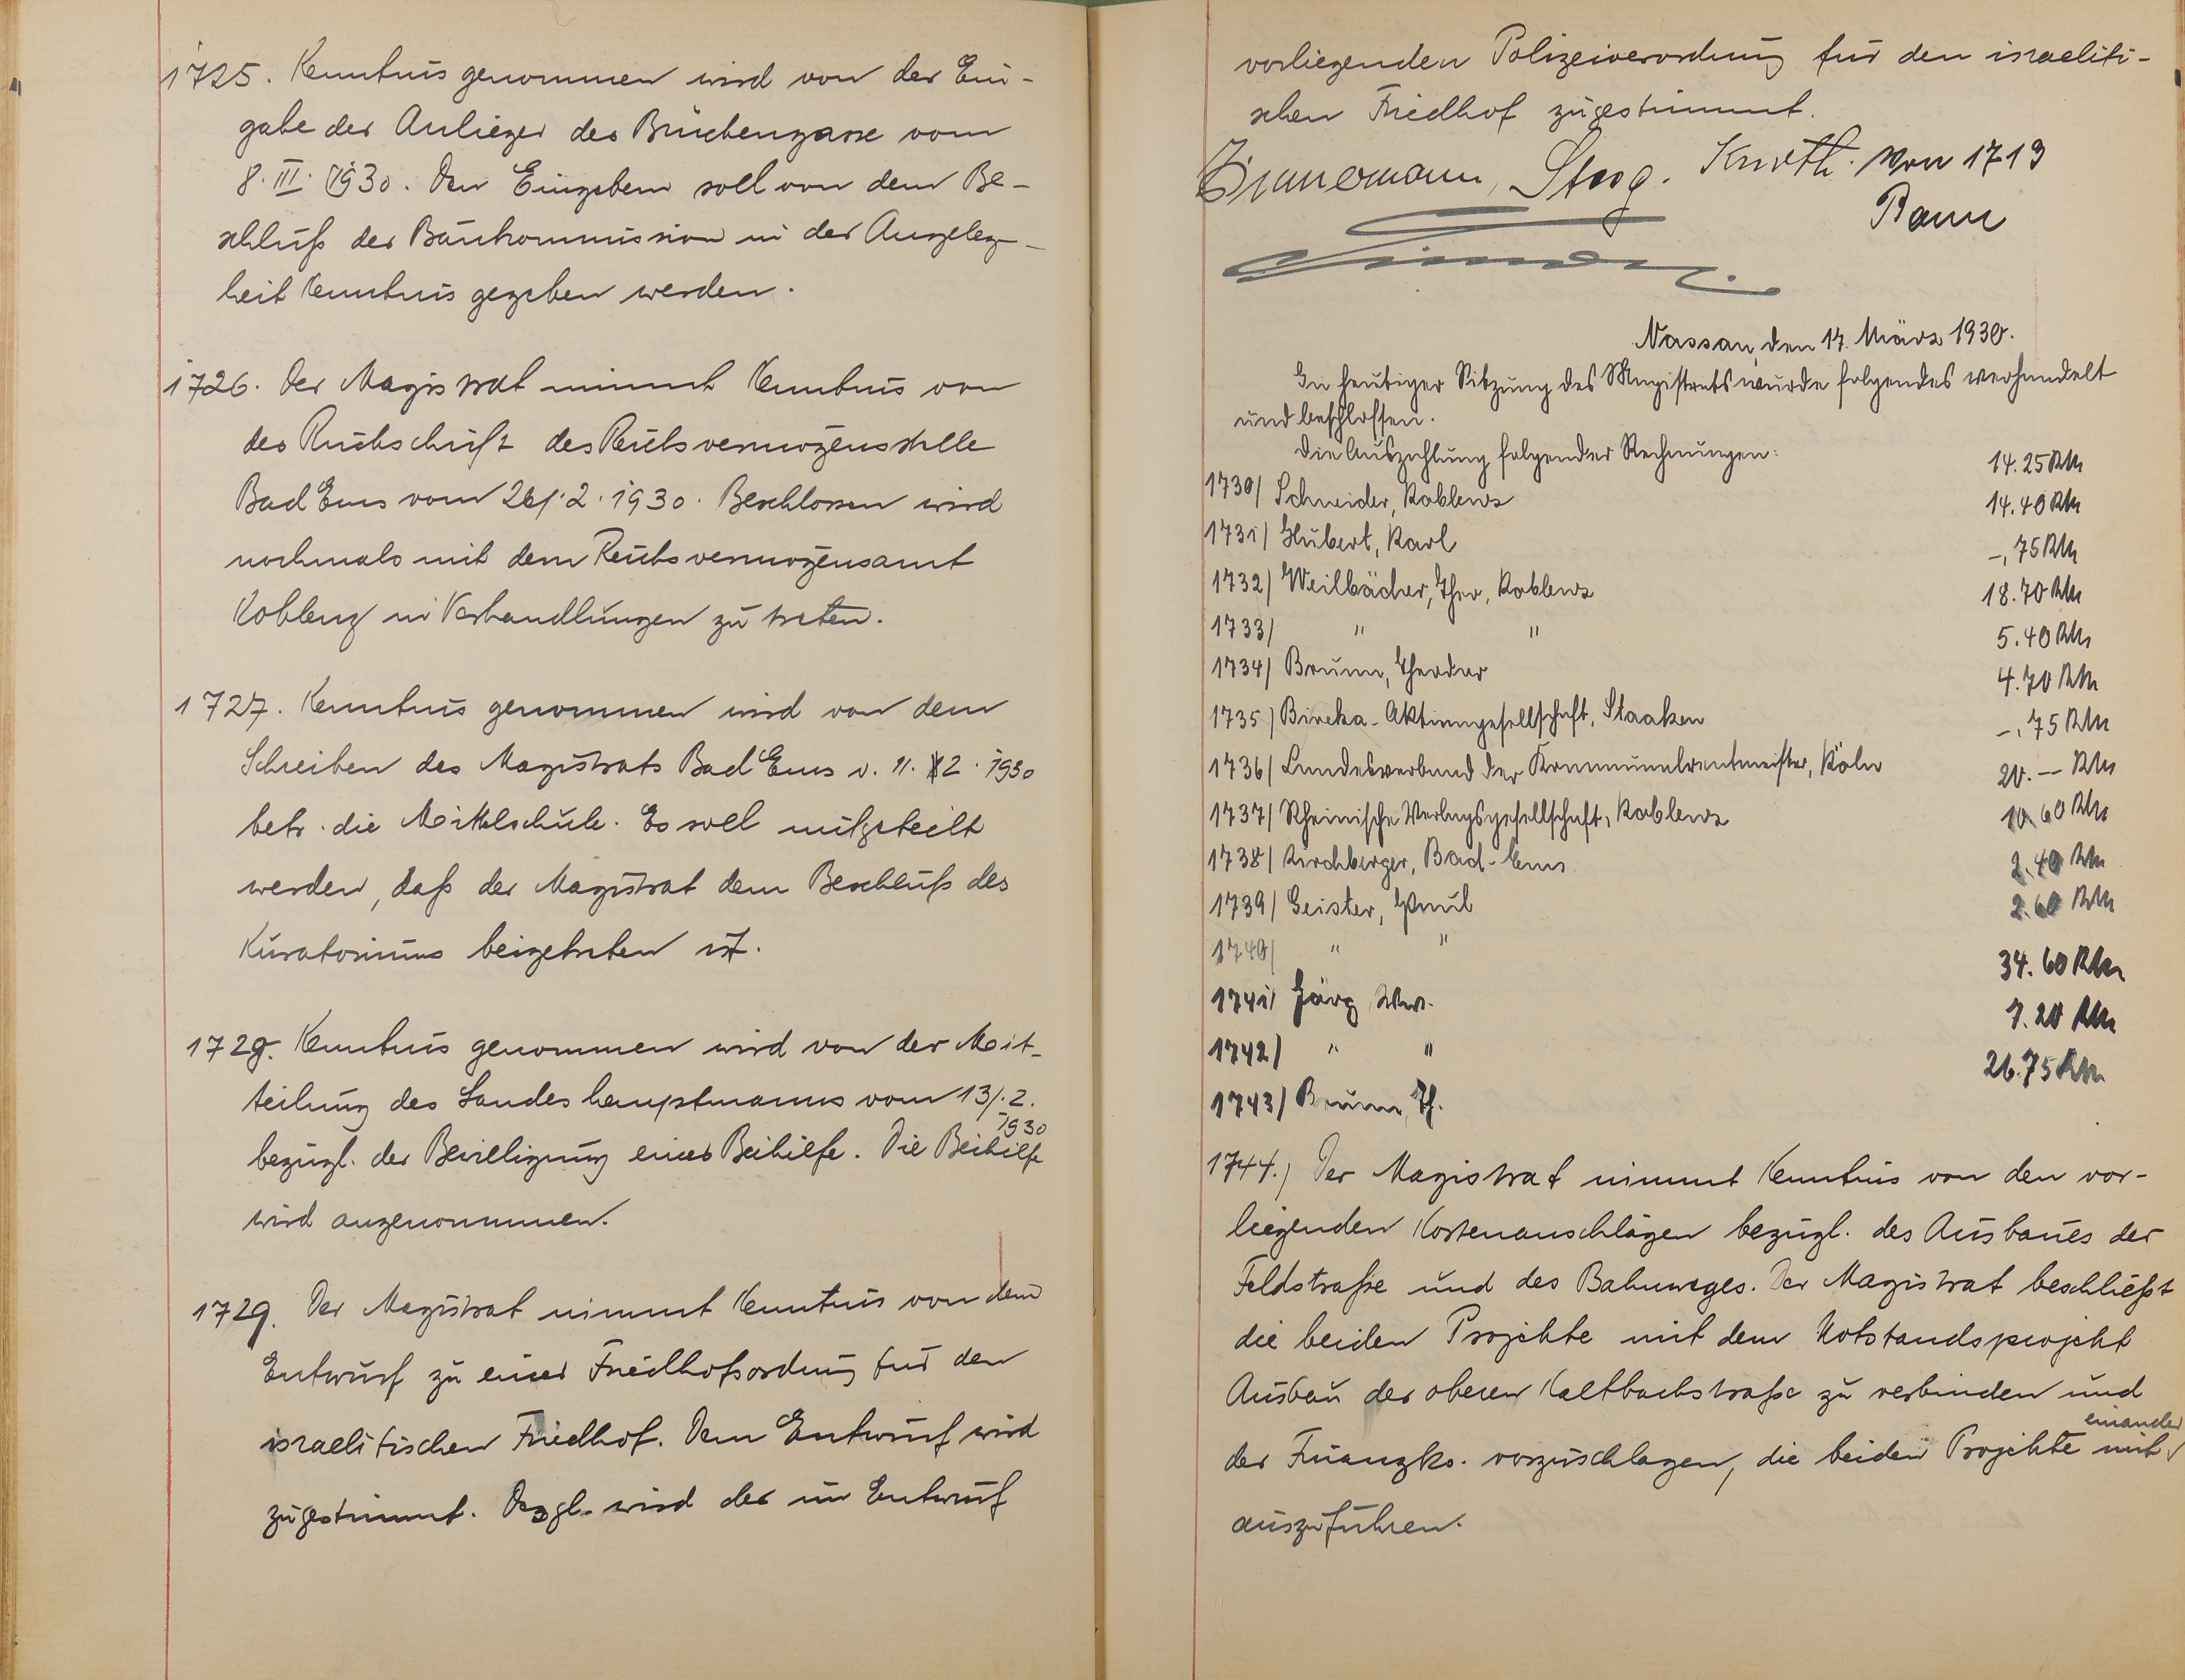 1725. Kenntnis genommen wird von der Ein-
gabe der Anlieger der Brückengasse vom
8. III. 1930. Den Eingebern soll von dem Be-
schluß der Baukommission in der Angelegen-
heit Kenntnis gegeben werden.
1726. Der Magistrat nimmt Kenntnis von
der Rückschrift der Reichsvermögensstelle
Bad Ems vom 26/.2.1930. Beschlossen wird
nochmals mit dem Reichsvermögensamt
Koblenz in Verhandlungen zu treten.
1727. Kenntnis genommen wird von dem
Schreiben des Magistrats Bad Ems v. 11. 2. 1930
betr. die Mittelschule. Es soll mitgeteilt
werden, daß der Magistrat dem Beschluß des
Kuratoriums beigetreten ist.
1728. Kenntnis genommen wird von der Mit-
teilung des Landeshauptmanns vom 13/.2.
1930
bezügl. der Bewilligung einer Beihilfe. Die Beihilfe
wird angenommen.
1729. Der Magistrat nimmt Kenntnis von dem
Entwurf zu einer Friedhofsordnung für den
israelitischen Friedhof. Dem Entwurf wird
zugestimmt. Desgl. wird der im Entwurf
vorliegenden Polizeiverordnung für den israeliti-
schen Friedhof zugestimmt.
Zimmermann, Knoth. von 1719
Baum
Nassau, den 14. März 1930.
In heutiger Sitzung des Magistrats wurde folgendes verhandelt
und beschlossen.
Die Auszahlung folgender Rechnungen:
1730/ Schneider, Koblenz 14.25 RM
1731/ Hubert, Karl 14.40 RM
1732/ Weilbächer, Theo, Koblenz -,75 RM
1733/ " " 18.70 RM
1734/ Brumm, Theodor 5.40 RM
1735/ Bireka-Aktiengesellschaft, Staaken 4.70 RM
1736/ Landesverband der Kommunalrentmeister, Köln -.75 RM
1737/ Rheinische Verlagsgesellschaft, Koblenz 20.-- RM
1738/ Kirchberger, Bad-Ems 10.60 RM
1739/ Geister, Paul 2.40 RM
1740/ " " 2.60 RM
1741/ Jörg Ww. 34.60 RM
1742/ " " 7.20 RM
1743/ Brumm, Th. 26.75 RM
1744./ Der Magistrat nimmt Kenntnis von den vor-
liegenden Kostenanschlägen bezügl. des Ausbaues der
Feldstraße und des Bahnweges. Der Magistrat beschließt
die beiden Projekte mit dem Notstandsprojekt
Ausbau der oberen Kaltbachstraße zu verbinden und
der Finanzko. vorzuschlagen, die beiden Projekte mit einander
auszuführen.